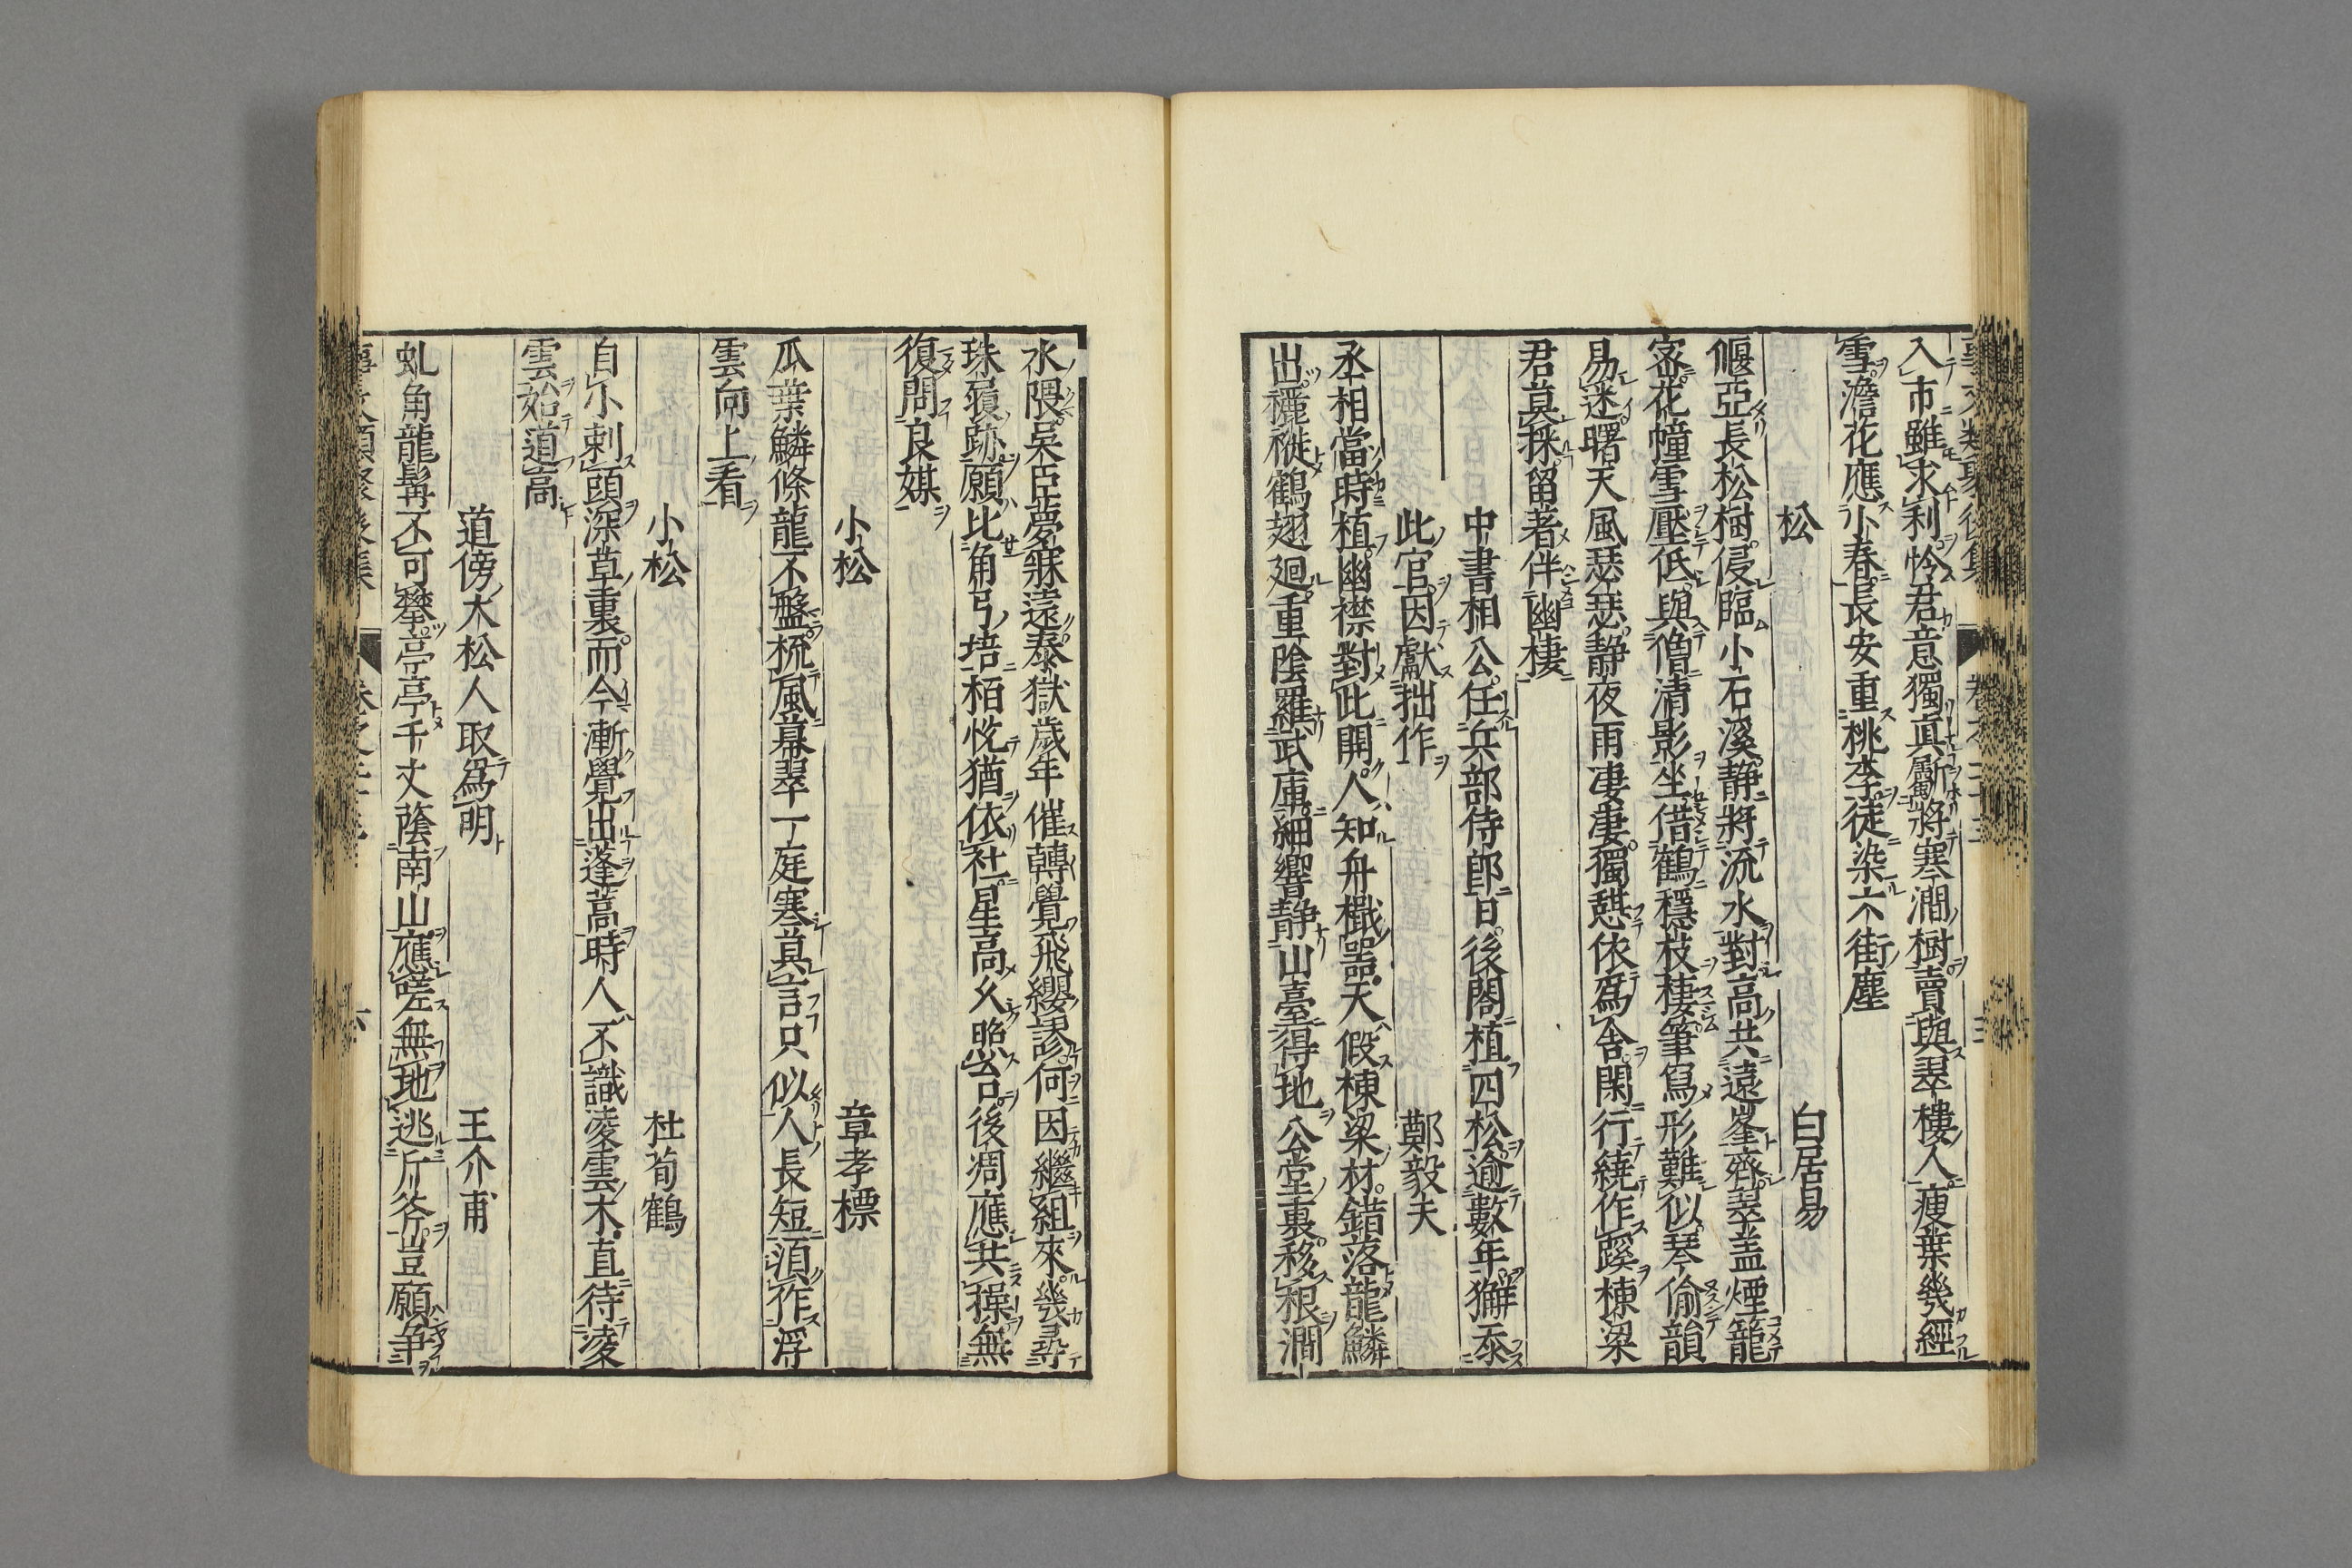 入市雖求利怜君意獨眞斸將寒澗樹賣與翠樓人瘦葉幾經
雪澹花應小春長安重桃李徒染六街塵
松 白居易
偃亞長松樹侵臨小石溪静將流水對高共遠峯齊翠盖煙籠
宻花幢雪壓低與僧清影坐借鶴穩枝棲筆寫形難似琴偷韻
易迷曙天風瑟瑟静夜雨凄凄獨憇依爲舍閑行繞作蹊棟梁
君莫採留着伴幽棲
中書相公任兵部侍郎日後閤植四松逾數年澥忝
此官因獻拙作 鄭毅夫
丞相當時植幽襟對此開人知舟檝噐天假棟梁材錯落龍鱗
出褷褷鶴翅廻重陰羅武庫細響静山臺得地公堂裏移根澗
水隈吳臣夢寐遠泰獄歲年催轉覺飛纓謬何因繼組來幾尋
珠履跡願比角弓培栢恱猶依社星高久照台後凋應共操無
復問良媒
小松 章孝標
瓜葉鱗條龍不盤梳風幕翠一庭寒莫言只似人長短須作浮
雲向上看
小松 杜荀鶴
自小刺頭深草裏而今漸覺出蓬蒿時人不識凌雲木直待凌
雲始道高
道傍大松人取爲明 王介甫
虬角龍髯不可攀亭亭千丈蔭南山應嗟無地逃斤斧豈願争